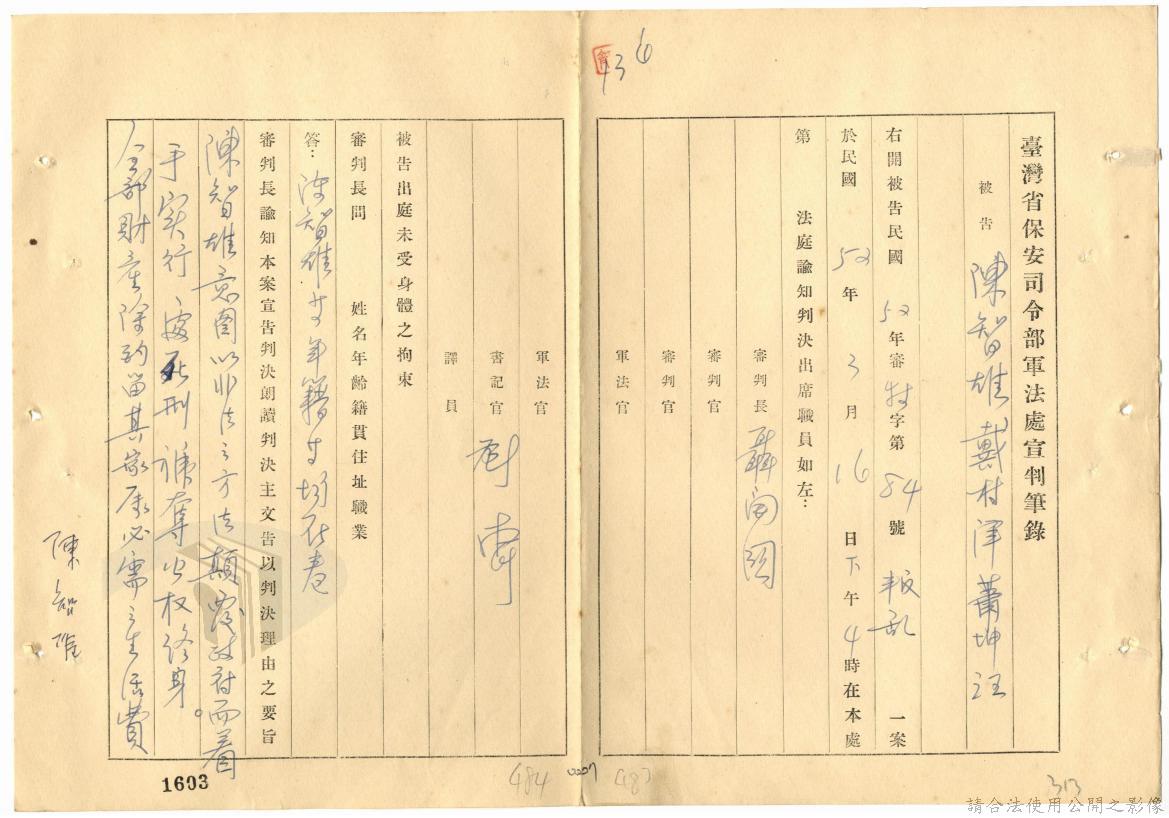 436
臺灣省保安司令部軍法處宣判筆錄
被告 陳智雄 戴村澤 蕭坤旺
右開被告民國 52 年審特字第 84 號 叛乱 一案
於民國 52 年 3 月 16 日下午 4 時在本處
第 法庭諭知判決出席職員如左：
審判長 聶開國
審判官
審判官
軍法官
軍法官
書記官
譯員
被告出庭未受身體之拘束
審判長問 姓名年齡籍貫住址職業
答：陳智雄 女年籍等均在卷
審判長諭知本案宣告判決朗讀判決主文告以判決理由之要旨
陳智雄意图以非法之方法顛覆政府而着
手实行處死刑褫奪公权終身。
全部財產除酌留其家屬必需之生活費
陳智雄
1603
484
0007
483
313
請合法使用公開之影像